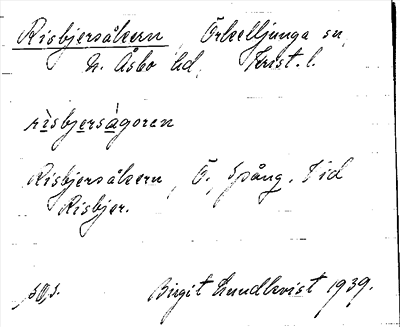 Risbjersåkern, Örkelljunga sn,
N. Åsbo hd, Krist. l.
rìsbjersàgoren
Risbjersåkern, Ö, Spång. I id
Risbjer.
Birgit Lundkvist 1939.